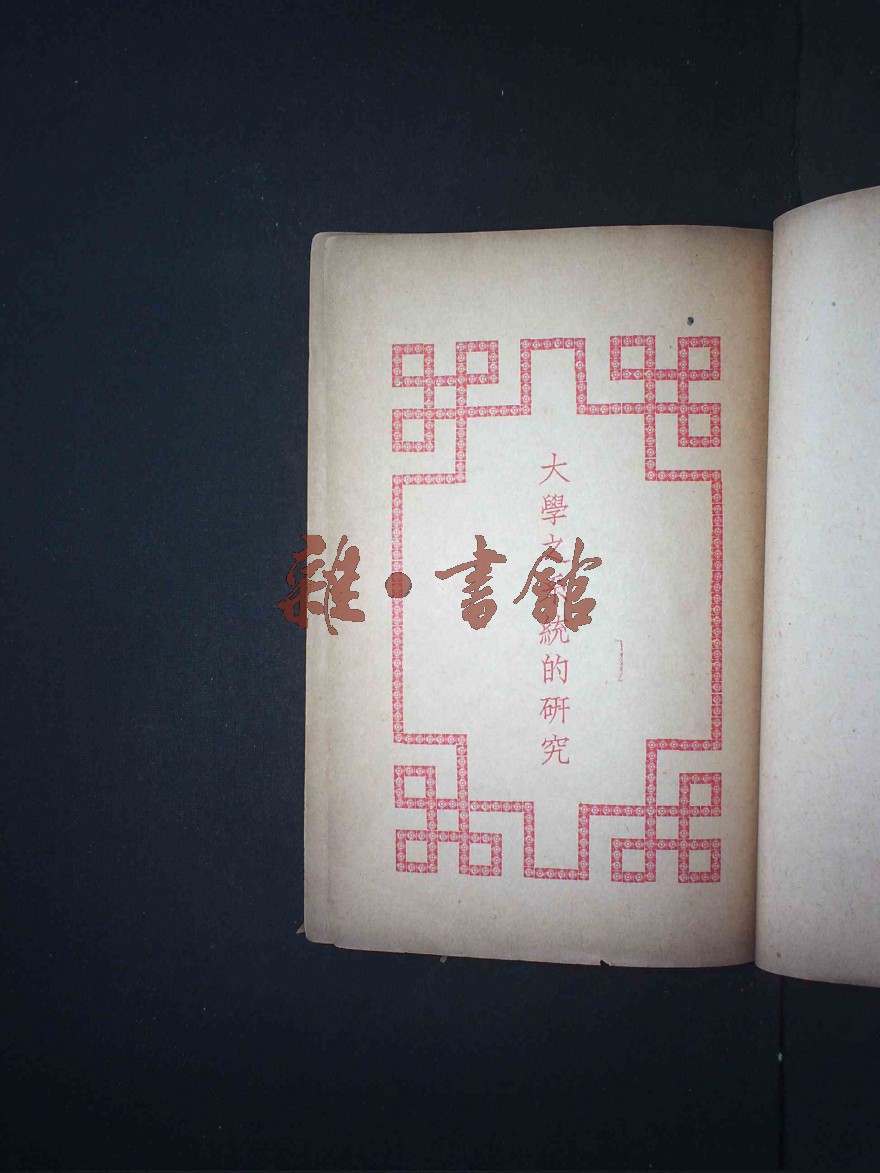 大學之系統的研究
雜·書館